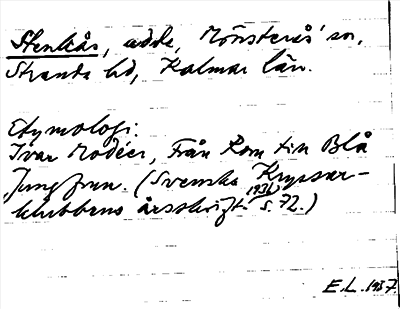 Stenkås, udde, Mönsterås' sn,
Stranda hd, Kalmar län.
Etymologi:
Ivar Modéer, Från Rom till Blå
Jungfrun. (Svenska Kryssar-
klubbens årsskrift 1936, s. 72.)
E.L. 1937.